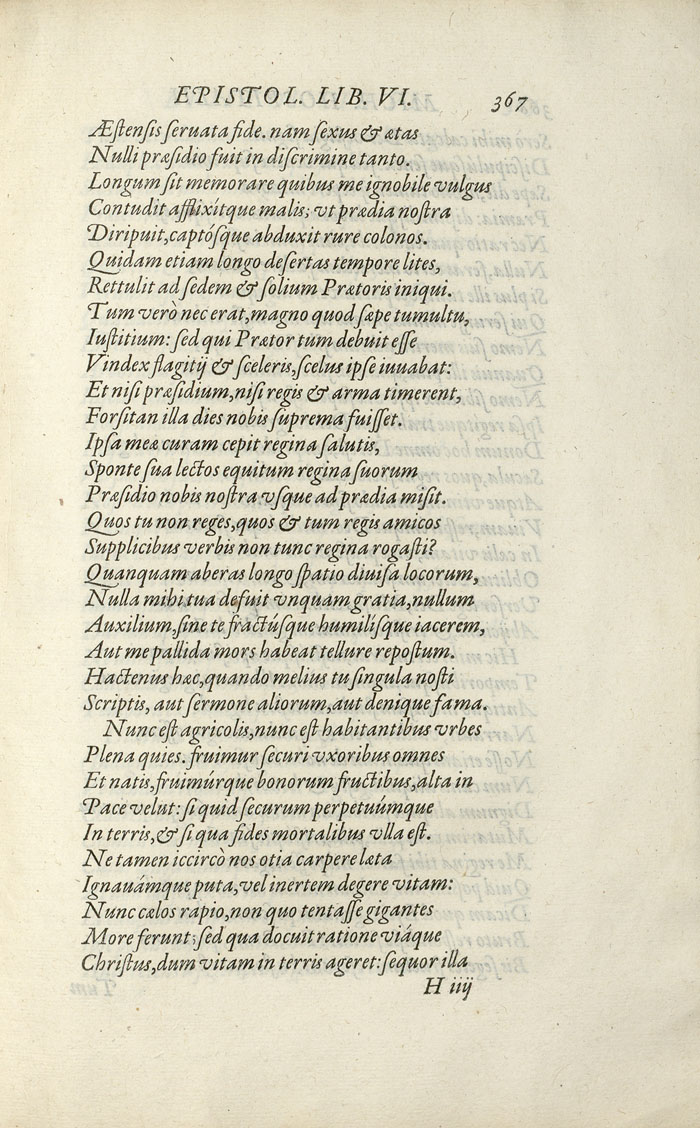 EPISTOL. LIB. VI. 367
Æſtenſis ſeruata fide. nam ſexus & ætas
Nulli præſidio fuit in diſcrimine tanto.
Longum ſit memorare quibus me ignobile vulgus
Contudit afflixítque malis; vt prædia noſtra
Diripuit, captóſque abduxit rure colonos.
Quidam etiam longo deſertas tempore lites,
Rettulit ad ſedem & ſolium Prætoris iniqui.
Tum verò nec erat, magno quod ſæpe tumultu,
Iuſtitium: ſed qui Prætor tum debuit eſſe
Vindex flagitij & ſceleris, ſcelus ipſe iuuabat:
Et niſi præſidium, niſi regis & arma timerent,
Forſitan illa dies nobis ſuprema fuiſſet.
Ipſa meæ curam cepit regina ſalutis,
Sponte ſua lectos equitum regina ſuorum
Præſidio nobis noſtra vſque ad prædia miſit.
Quos tu non reges, quos & tum regis amicos
Supplicibus verbis non tunc regina rogaſti?
Quanquam aberas longo ſpatio diuiſa locorum,
Nulla mihi tua defuit vnquam gratia, nullum
Auxilium, ſine te fractúſque humilíſque iacerem,
Aut me pallida mors habeat tellure repoſtum.
Hactenus hæc, quando melius tu ſingula noſti
Scriptis, aut ſermone aliorum, aut denique fama.
Nunc eſt agricolis, nunc eſt habitantibus vrbes
Plena quies. fruimur ſecuri vxoribus omnes
Et natis, fruimúrque bonorum fructibus, alta in
Pace velut: ſi quid ſecurum perpetuúmque
In terris, & ſi qua fides mortalibus vlla eſt.
Ne tamen iccircò nos otia carpere læta
Ignauámque puta, vel inertem degere vitam:
Nunc cælos rapio, non quo tentaſſe gigantes
More ferunt; ſed qua docuit ratione viáque
Chriſtus, dum vitam in terris ageret: ſequor illa
H iiij